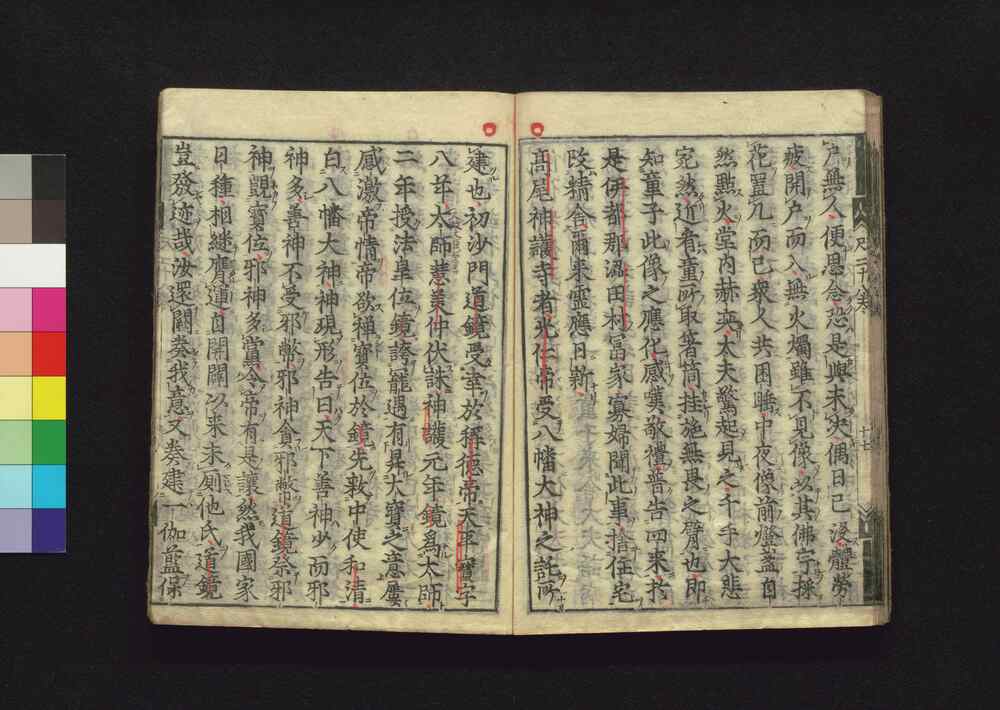 戸無人便思念恐是與未決偶日已没體勞
疲開戸而入無火燭雖不見像以其佛宇採
花置几而已衆人共困睡中夜像前燈盞自
然點火堂内赫奕太夫驚起見之千手大悲
宛然近者童所取箸筒挂施無畏之臂也即
知童子此像之應化感嘆敬禮普告四來扵
是伊都那澁田村冨家寡婦聞此事捨住宅
改精舍爾來靈應日新
髙尾神護寺者光仁帝受八幡大神之託所
建也初沙門道鏡受幸於稱德帝天平寶字
八年太師慧美仲伏誅神護元年鏡爲太師
二年授法皇位鏡誇寵遇有昇大寶之意屢
感激帝情帝欲禪寶位於鏡先敕中使和清
白八幡大神神現形告曰天下善神少而邪
神多善神不受邪幣邪神貪邪幣道鏡奈邪
神覬寶位邪神多黨令帝有是讓然我國家
日種相継膺運自開闢以來未厠他氏道鏡
豈發迹哉汝還闕奏我意又奏建一伽藍保